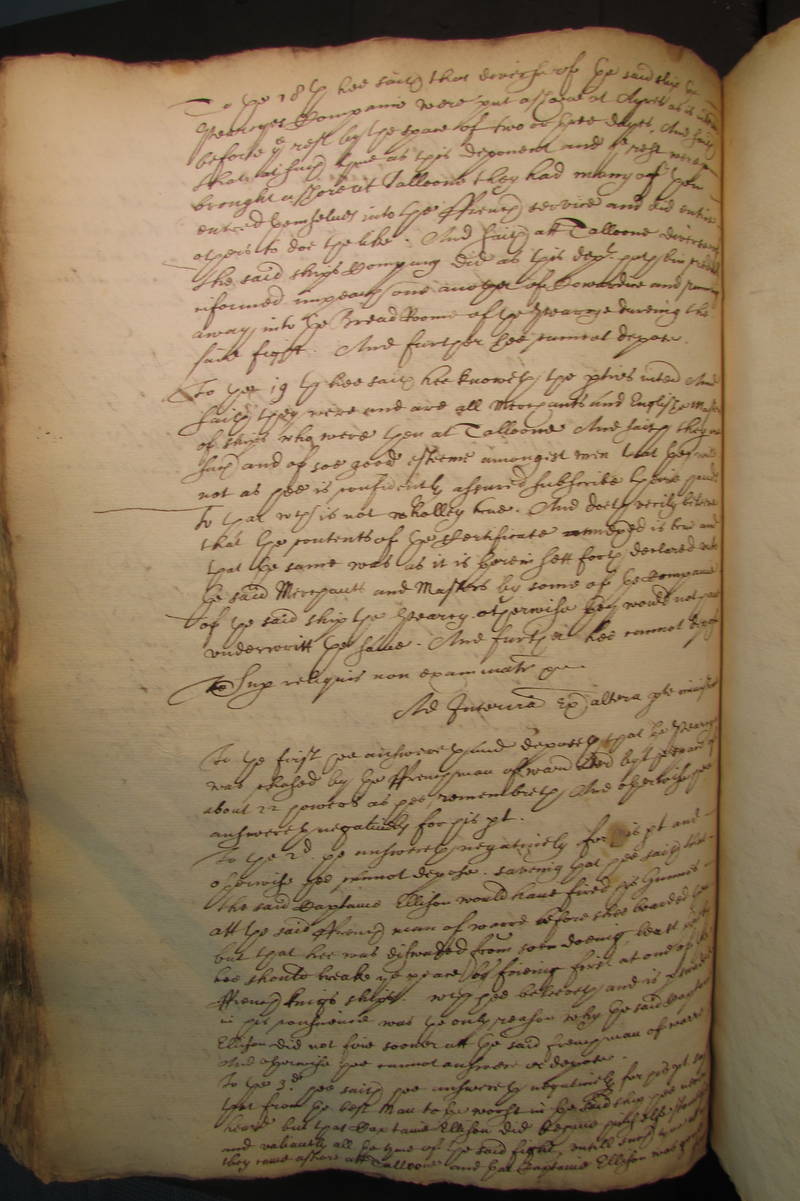 To the 18th hee saith that diverse of the said ship the
Georges Companie were put ashoare at as is
before ye rest by the space of two or three dayes, And saith
that at such tyme as this deponent and ye rest were
brought ashore at Talloone they had many of them
entred themselves into the ffrench service and did entice
others to doe the like. And saith att Talloone diverse of
the said ships Company did as this dept hath bin credibly
informed impeach one another of Cowardize and running
away into the Bread Roome of the George dureing the
said fight. And further hee cannot depose.
To the 19th hee saith hee knoweth the And
saith they were and are all Merchants and English Masters
of ships who were then at Talloone And saith they are
such and of soe good esteeme amongst men that they would
not as hee is confidently assured subscribe their hands
to that wch is not wholley true. And doth verily beleive
that the contents of the Certificate annexed is true and
that the same was as it is herein sett forth declared unto
the said Merchants and Masters by some of the Companie
of the said ship the George otherwise they would not have
underwritt the same. And further hee cannot depose
Sup reliquis non examinatr
Ad Interria Ex altera pte ministrat
To the first hee answereth and deposeth that the George
was chased by the ffrenchman of warr by the space of
about 22 howers as hee remembreth And otherwise hee
answereth negatively for his pt.
To the 2d. he answereth negatively for his pt and
otherwise hee cannot depose. saveing that hee saith that
the said Captaine Ellison would have fired his Gunnes
att the said ffrench man of warre before shee boarded her
but that hee was diswaded from soe doeing, least
hee should breake ye peace by fireing first at one of the
ffrench kings ships. wch hee beleiveth and is perswaded
in his conscience was the only reason why the said Captaine
Ellison did not fire sooner att the said frenchman of warr
And otherwise hee cannot answere or depose.
To the 3d. hee saith hee answereth negatively for his pt
that from the best man to the worst in the said ship hee never
heard but that Captaine Ellison did behave himselfe
and valiantly all the tyme of the said fight, untill such tyme as
they came ashore att Talloone and that Captaine Ellison was